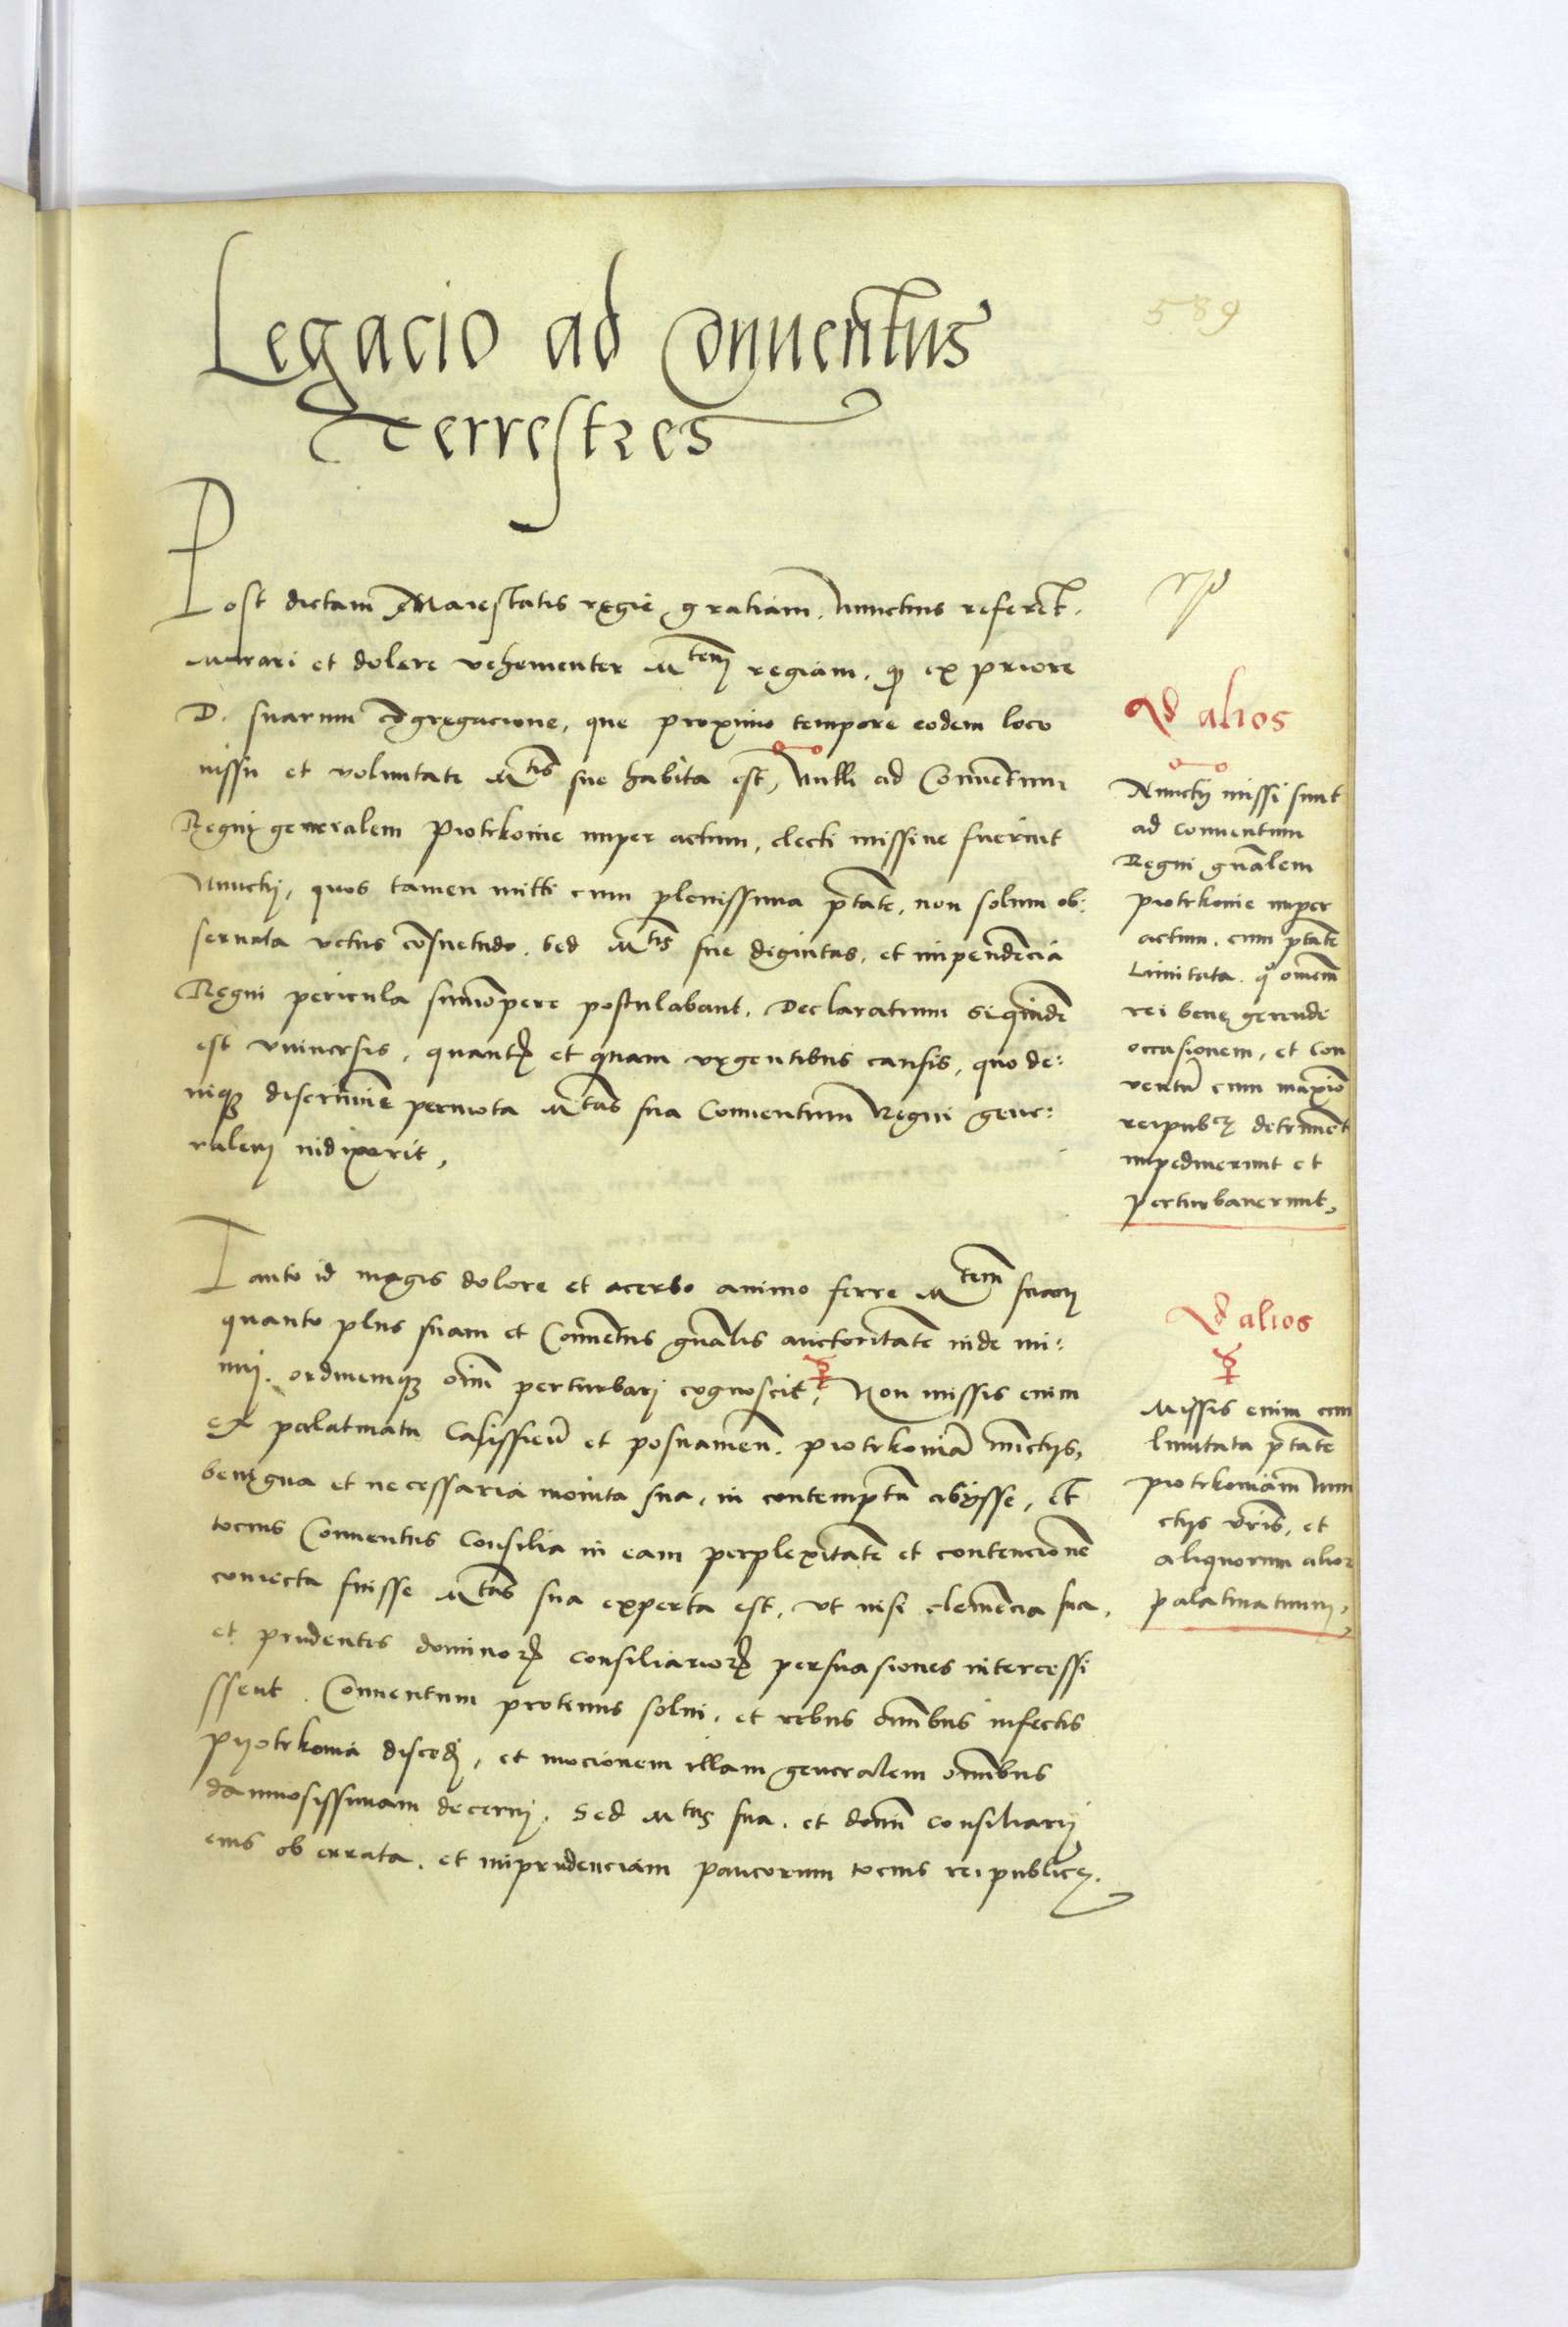 589
Legacio ad Conuentus
Terrestres
Post dictam Maiestatis regie gratiam. Nunctius referet.
Mirari et dolere vehementer Mtem regiam, qp ex priore
D. suarum cõgregacione, que proximo tempore eodem loco
iussu et voluntate Mtis sue habita est, Nulli ad Conuentum
Regni generalem Piotrkouie nuper actum, electi missiue fuerint
Nunctij, quos tamen mitti cum plenissima ptate, non solum ob:
seruata vetus cõsuetudo. sed Mtis sue dignitas, et impendẽcia
Regni pericula summopere postulabant. Declaratum siquidẽ
est vniuersis, quantis et quam vrgentibus causis, quo de:
niqz discrimine permota Mtas sua Conuentum Regni gene:
ralem indixerit,
Tanto id magis dolore et acerbo animo ferre Mtem suam
quanto plus suam et Conuẽtus gñalis auctoritatẽ inde mi:
nui. ordinemqz oim perturbari cognoscit, Non missis enim
ex palatinatu Calissieñ et posnanieñ. Piotrkouiã nũctijs,
benigna et necessaria monita sua, in contemptũ abijsse, Et
tocius Conuentus Consilia in eam perplexitatẽ et contencionẽ
coniecta fuisse Mtas sua experta est, vt nisi clemẽcia sua,
et prudentes dominorz consiliariorz persuasiones intercessi
ssent. Conuentum protenus solui, et rebus oĩnibus infectis
Pyotrkouia discedj, et mocionem illam generalem oĩnibus
damnosissimam decernj. Sed Mtas sua. et domĩ consiliarij
eius ob errata. et imprudenciam paucorum tocius reipublice.
Ad alios
Nunctij missi sunt
ad conuentum
Regni gñalem
piotrkouie nuper
actum. cum ptate
Limitata. qo omẽm
rei bene gerende
occasionem, et con
ventũ cum maxio
reipubce detrimẽt
impediuerunt et
perturbauerunt,
Ad alios
Missis enim cum
limitata ptate
piotrkouiam nun
ctijs vris, et
aliquorum alior
palatinatuum,